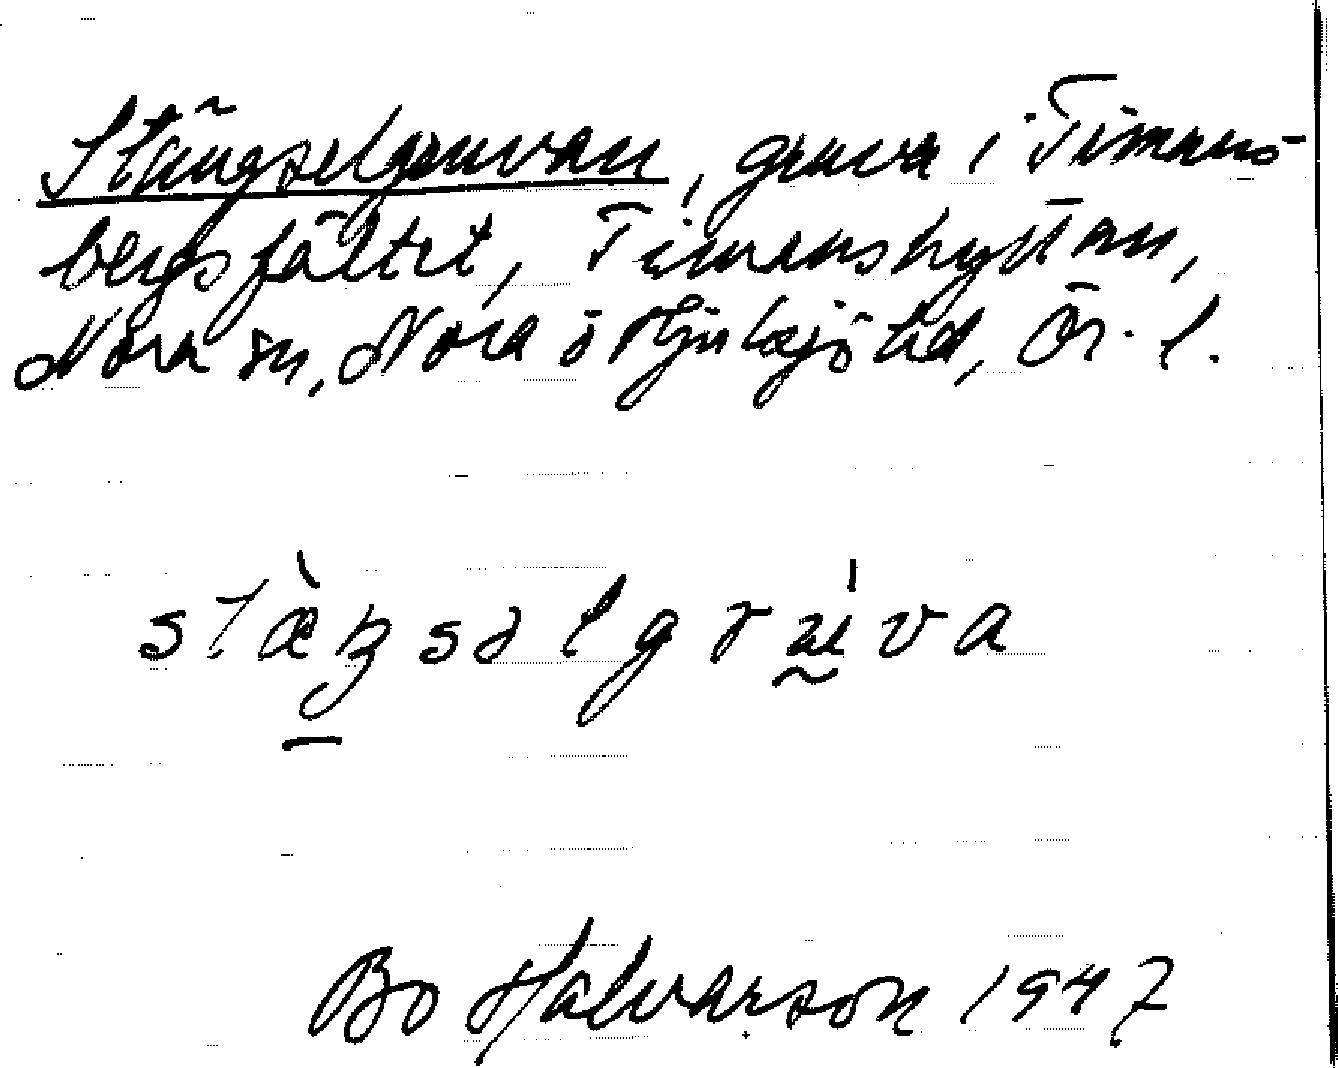 Stängselgruvan, gruva i Timans-
bergsfältet, Timanshyttan,
Nora sn, Nora o Hjulsjö tld, Ör. l.
stæ̀ŋsəlgrúva
Bo Halvarson 1947